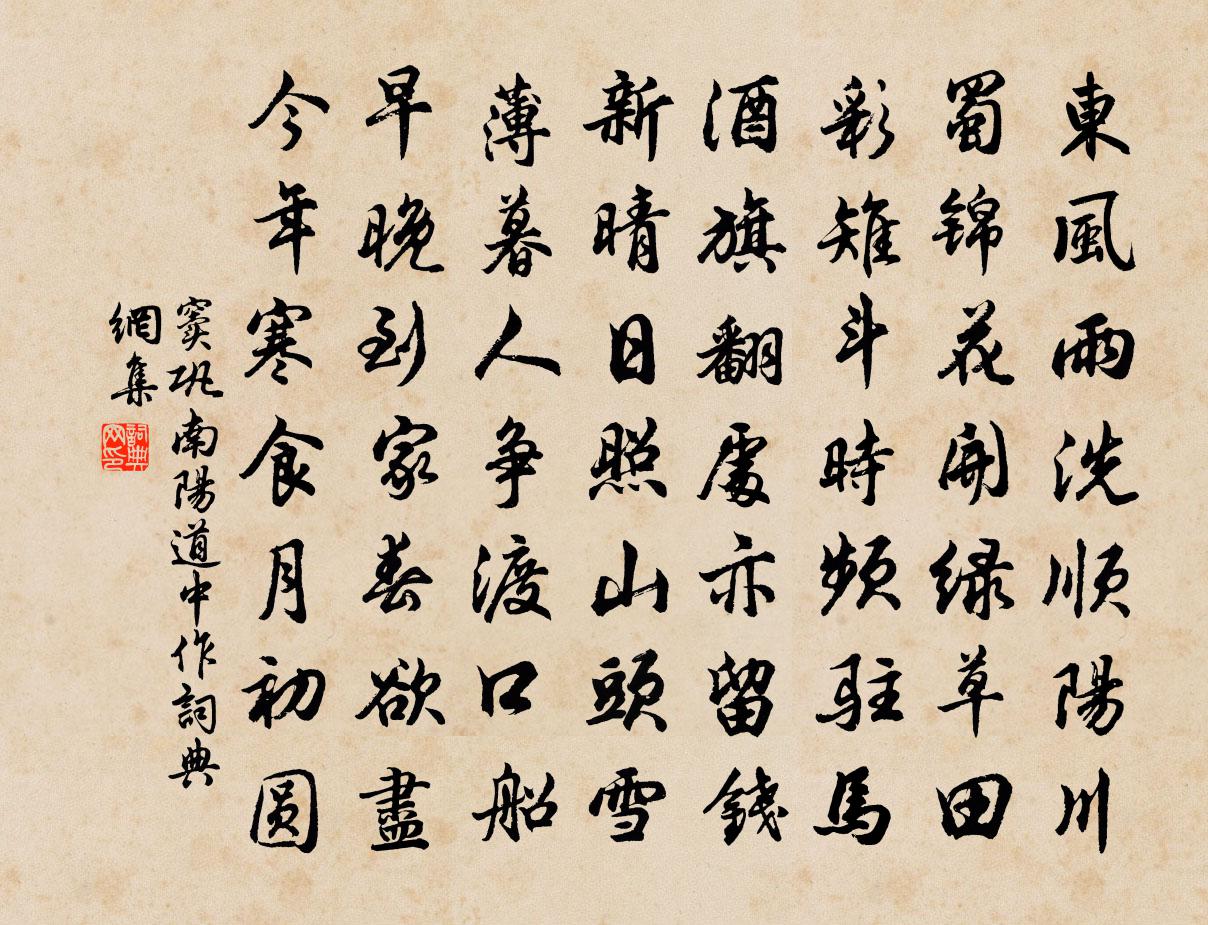 東風雨洗順陽川
蜀锦花開绿草田
彩雉斗時頻駐馬
酒旗翻處亦留錢
新晴日照山頭雪
薄暮人争渡口船
早晚到家春欲盡
今年寒食月初圆
窦巩南陽道中作詞典
網集
詞典
网印